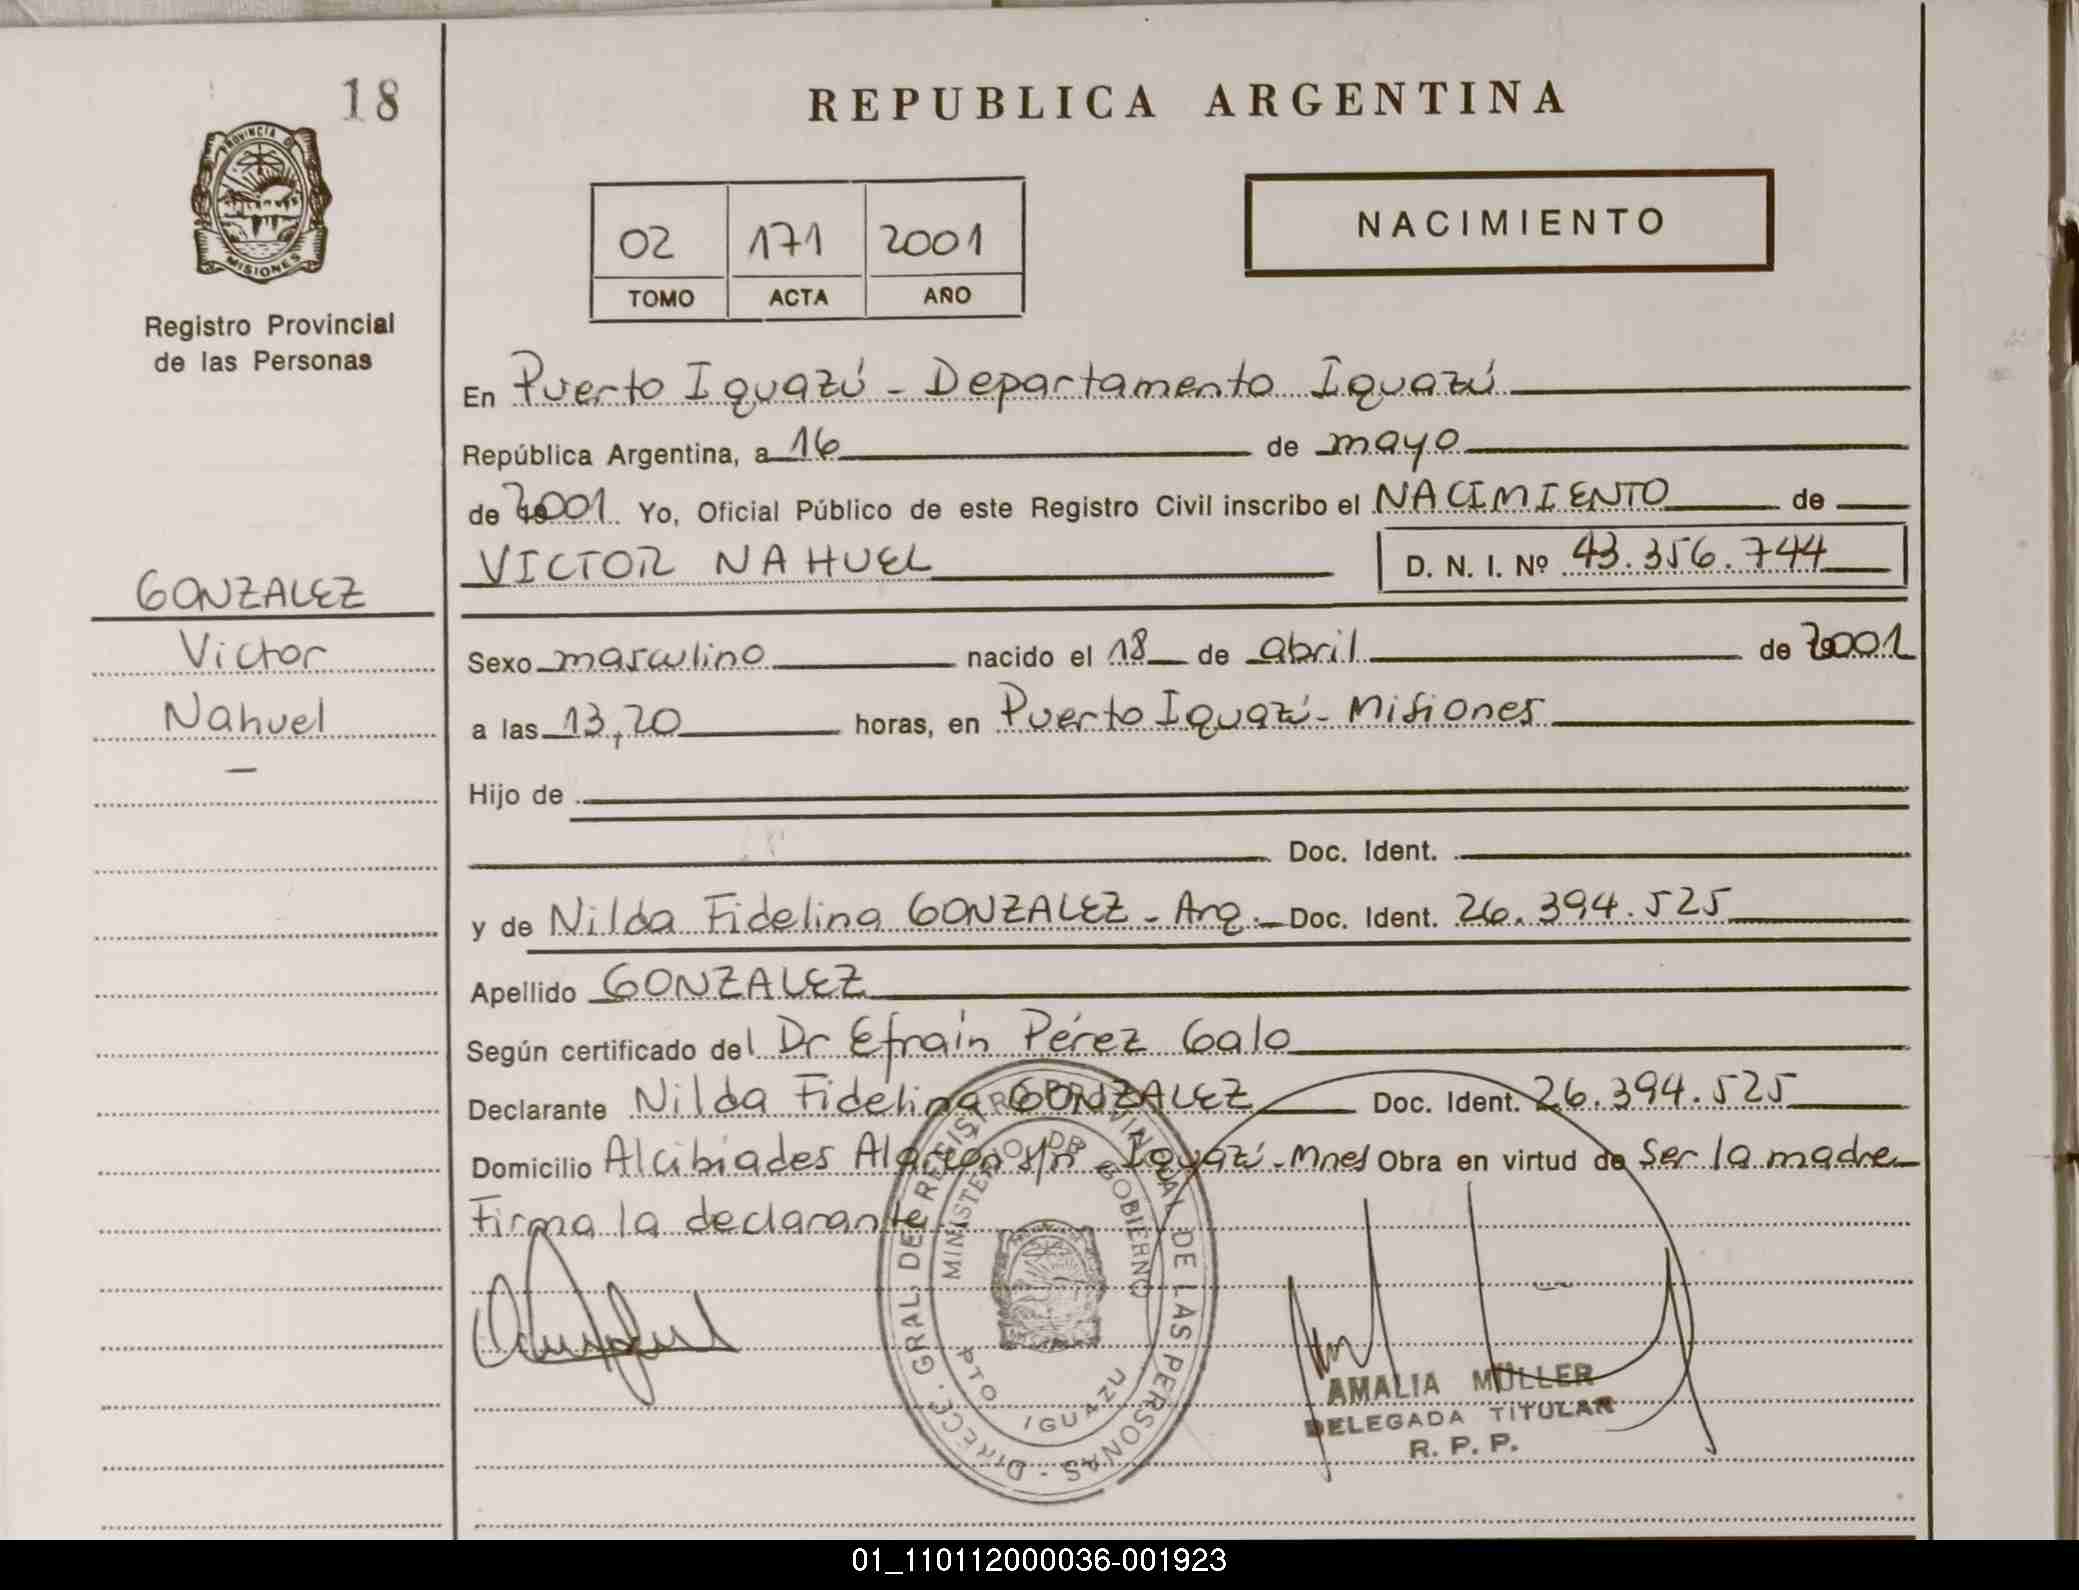 18
REPUBLICA ARGENTINA
PROVINCIA DE
MISIONES
Registro Provincial
de las Personas
02 171 2001
TOMO ACTA AÑO
NACIMIENTO
En Puerto Iguazú - Departamento Iguazú
República Argentina, a 16 de mayo
de 2001 Yo, Oficial Público de este Registro Civil inscribo el NACIMIENTO de
VICTOR NAHUEL D. N. I. Nº 43.356.744
GONZALEZ
Victor
Nahuel
Sexo masculino nacido el 18 de abril de 2001
a las 13,20 horas, en Puerto Iguazú - Misiones
Hijo de
Doc. Ident.
y de Nilda Fidelina GONZALEZ - Arg. Doc. Ident. 26.394.525
Apellido GONZALEZ
Según certificado del Dr Efraín Pérez Galo
Declarante Nilda Fidelina GONZALEZ Doc. Ident. 26.394.525
Domicilio Alcibiades Alarcón s/n - Iguazú - Mnes Obra en virtud de Ser la madre
Firma la declarante.
DIRECC. GRAL. DE REGISTRO PROVINCIAL DE LAS PERSONAS
MINISTERIO DE GOBIERNO
PTO IGUAZU
AMALIA MÜLLER
DELEGADA TITULAR
R. P. P.
01_110112000036-001923